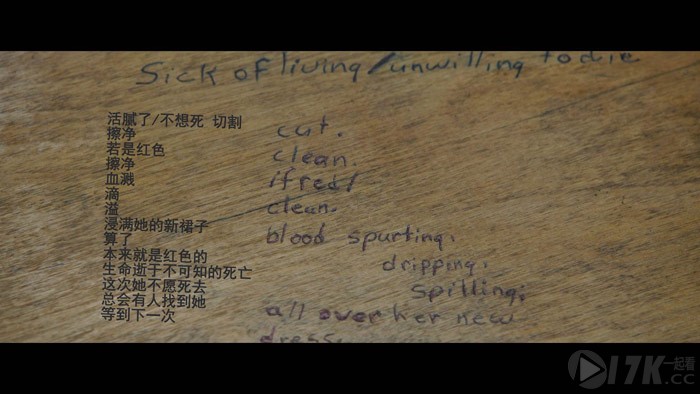 Sick of living/unwilling to die
活腻了/不想死 切割
擦净
若是红色
擦净
血溅
滴
溢
浸满她的新裙子
算了
本来就是红色的
生命逝于不可知的死亡
这次她不愿死去
总会有人找到她
等到下一次
cut.
clean.
if red/
clean.
blood spurting.
dripping.
spilling;
all over her new
dress.
17K 一起看
.cc